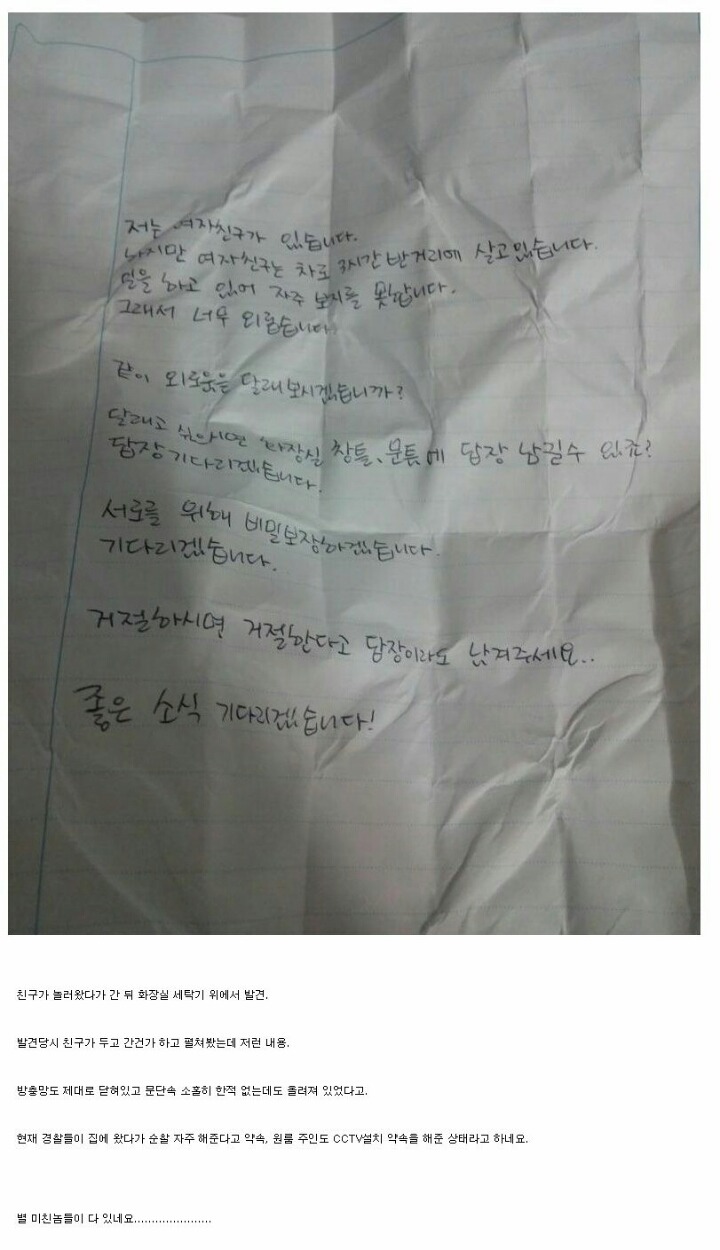 저는 여자친구가 있습니다.
하지만 여자친구는 차로 3시간 반거리에 살고있습니다.
일을 하고 있어 자주 보지를 못합니다.
그래서 너무 외롭습니다.
같이 외로움을 달래보시겠습니까?
달래고 싶으시면 화장실 창틀, 문틈에 답장 남길수 있죠?
답장 기다리겠습니다.
서로를 위해 비밀보장하겠습니다.
기다리겠습니다.
거절하시면 거절한다고 답장이라도 남겨주세요..
좋은 소식 기다리겠습니다!
친구가 놀러왔다가 간 뒤 화장실 세탁기 위에서 발견.
발견당시 친구가 두고 간건가 하고 펼쳐봤는데 저런 내용.
방충망도 제대로 닫혀있고 문단속 소홀히 한적 없는데도 올려져 있었다고.
현재 경찰들이 집에 왔다가 순찰 자주 해준다고 약속, 원룸 주인도 CCTV설치 약속을 해준 상태라고 하네요.
별 미친놈들이 다 있네요......................